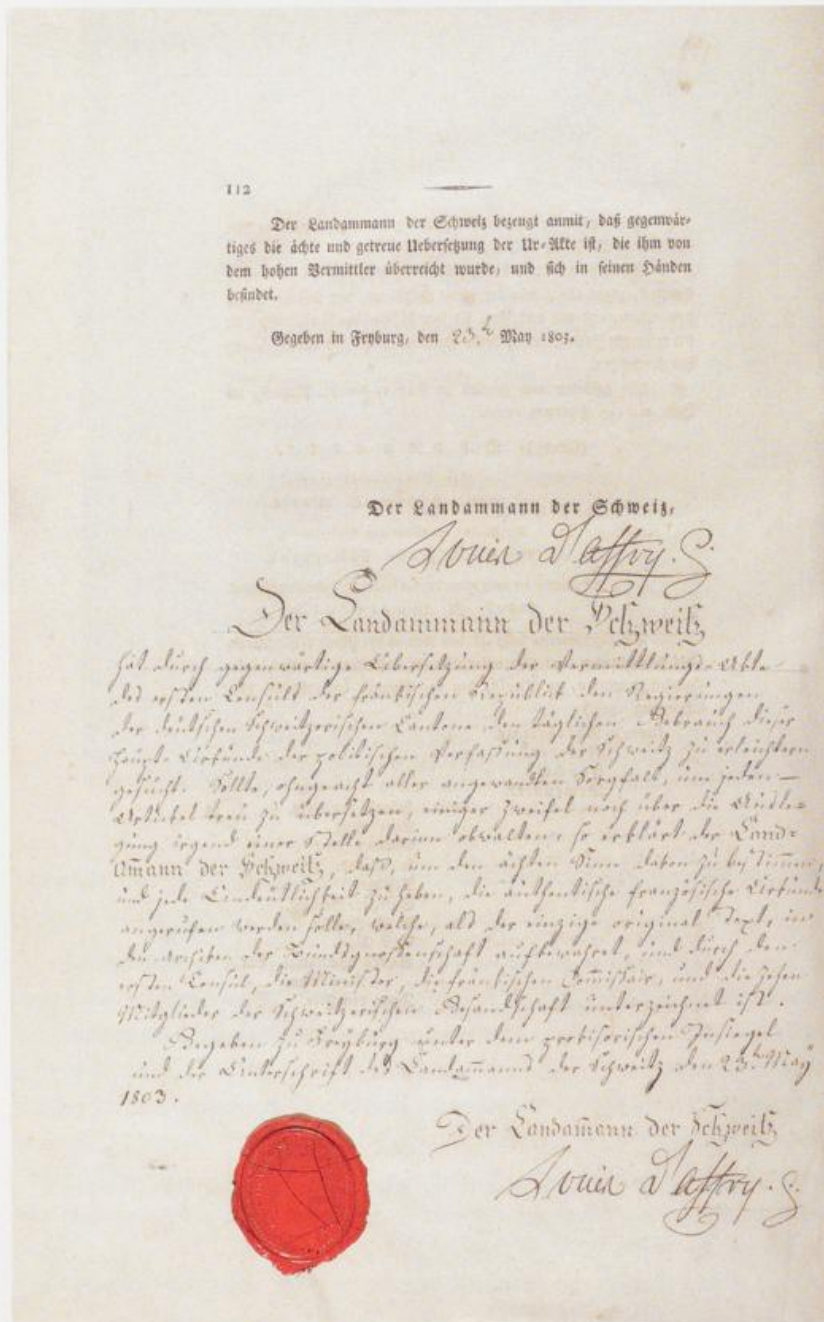 112
Der Landammann der Schweiz bezeugt anmit, daß gegenwär-
tiges die ächte und getreue Uebersetzung der Ur-Akte ist, die ihm von
dem hohen Vermittler überreicht wurde, und sich in seinen Händen
befindet.
Gegeben in Fryburg, den 23.t May 1803.
Der Landammann der Schweiz,
Louis D'affry.
Der Landammann der Schweitz
hat durch gegenwärtige Übersetzung der Vermittlungs-Akte
des ersten Consuls der fränkischen Republik den Regierungen
der deutschen Schweitzerischen Cantone den täglichen Gebrauch dieser
Haupt-Urkunde der politischen Verfassung der Schweitz zu erleichtern
gesucht. Sollte, ohngeacht aller angewandten Sorgfalt, um jeden
Artickel treu zu übersetzen, einiger Zweifel noch über die Ausle=
gung irgend einer Stelle darinn obwalten, so erklärt der Land=
am̅ann der Schweitz, daß, um den ächten Sinn davon zu bestimmen,
und jede Undeutlichkeit zu heben, die authentische französische Urkunde
angerufen werden solle, welche, als der einzige original Text, in
den Archiven der Bundsgenossenschaft aufbewahret, und durch den
ersten Consul, die Minister, die fränkischen Com̅issair, und die zehen
Mitglieder der Schweitzerischen Gesandschaft unterzeichnet ist.
Gegeben zu Freyburg unter dem provisorischen Insiegel
und der Unterschrift des Landam̅anns der Schweitz den 23.t May
1803.
Der Landam̅ann der Schweitz
Louis D'affry.